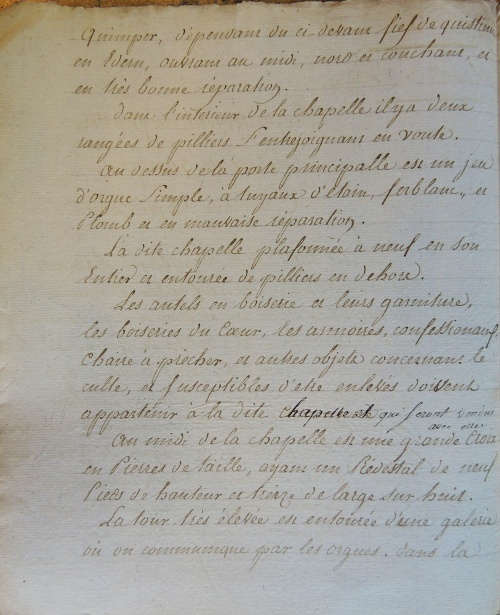 Quimper, dépendant du ci-devant fief de quistinit
en Edern, ouvrant au midi, nord et couchant, et
en très bonne réparation.
Dans l'interieur de la chapelle il y a deux
rangées de pilliers S'entrejoignant en voute.
Au dessus de la porte principalle est un jeu
d'orgue Simple, à tuyaux d'étain, ferblanc, et
Plomb et en mauvaise réparation.
La dite chapelle plafonnée à neuf en son
Entier et entourée de pilliers en dehors.
Les autels en boiserie et leurs garniture,
les boiseries du Cœur, les armoires, confessionaux
Chaire à prêcher, et autres objets concernant le
culte, et Susceptibles d'etre enlevés doivent
appartenir à la dite chapelle et qui seront vendus
avec elle.
Au midi de la chapelle est une grande Croix
en Pierres de taille, ayant un Piédestal de neuf
Pieds de hauteur et treize de large sur huit.
La tour très élevée est entourée d'une galerie
où on communique par les orgues. dans la